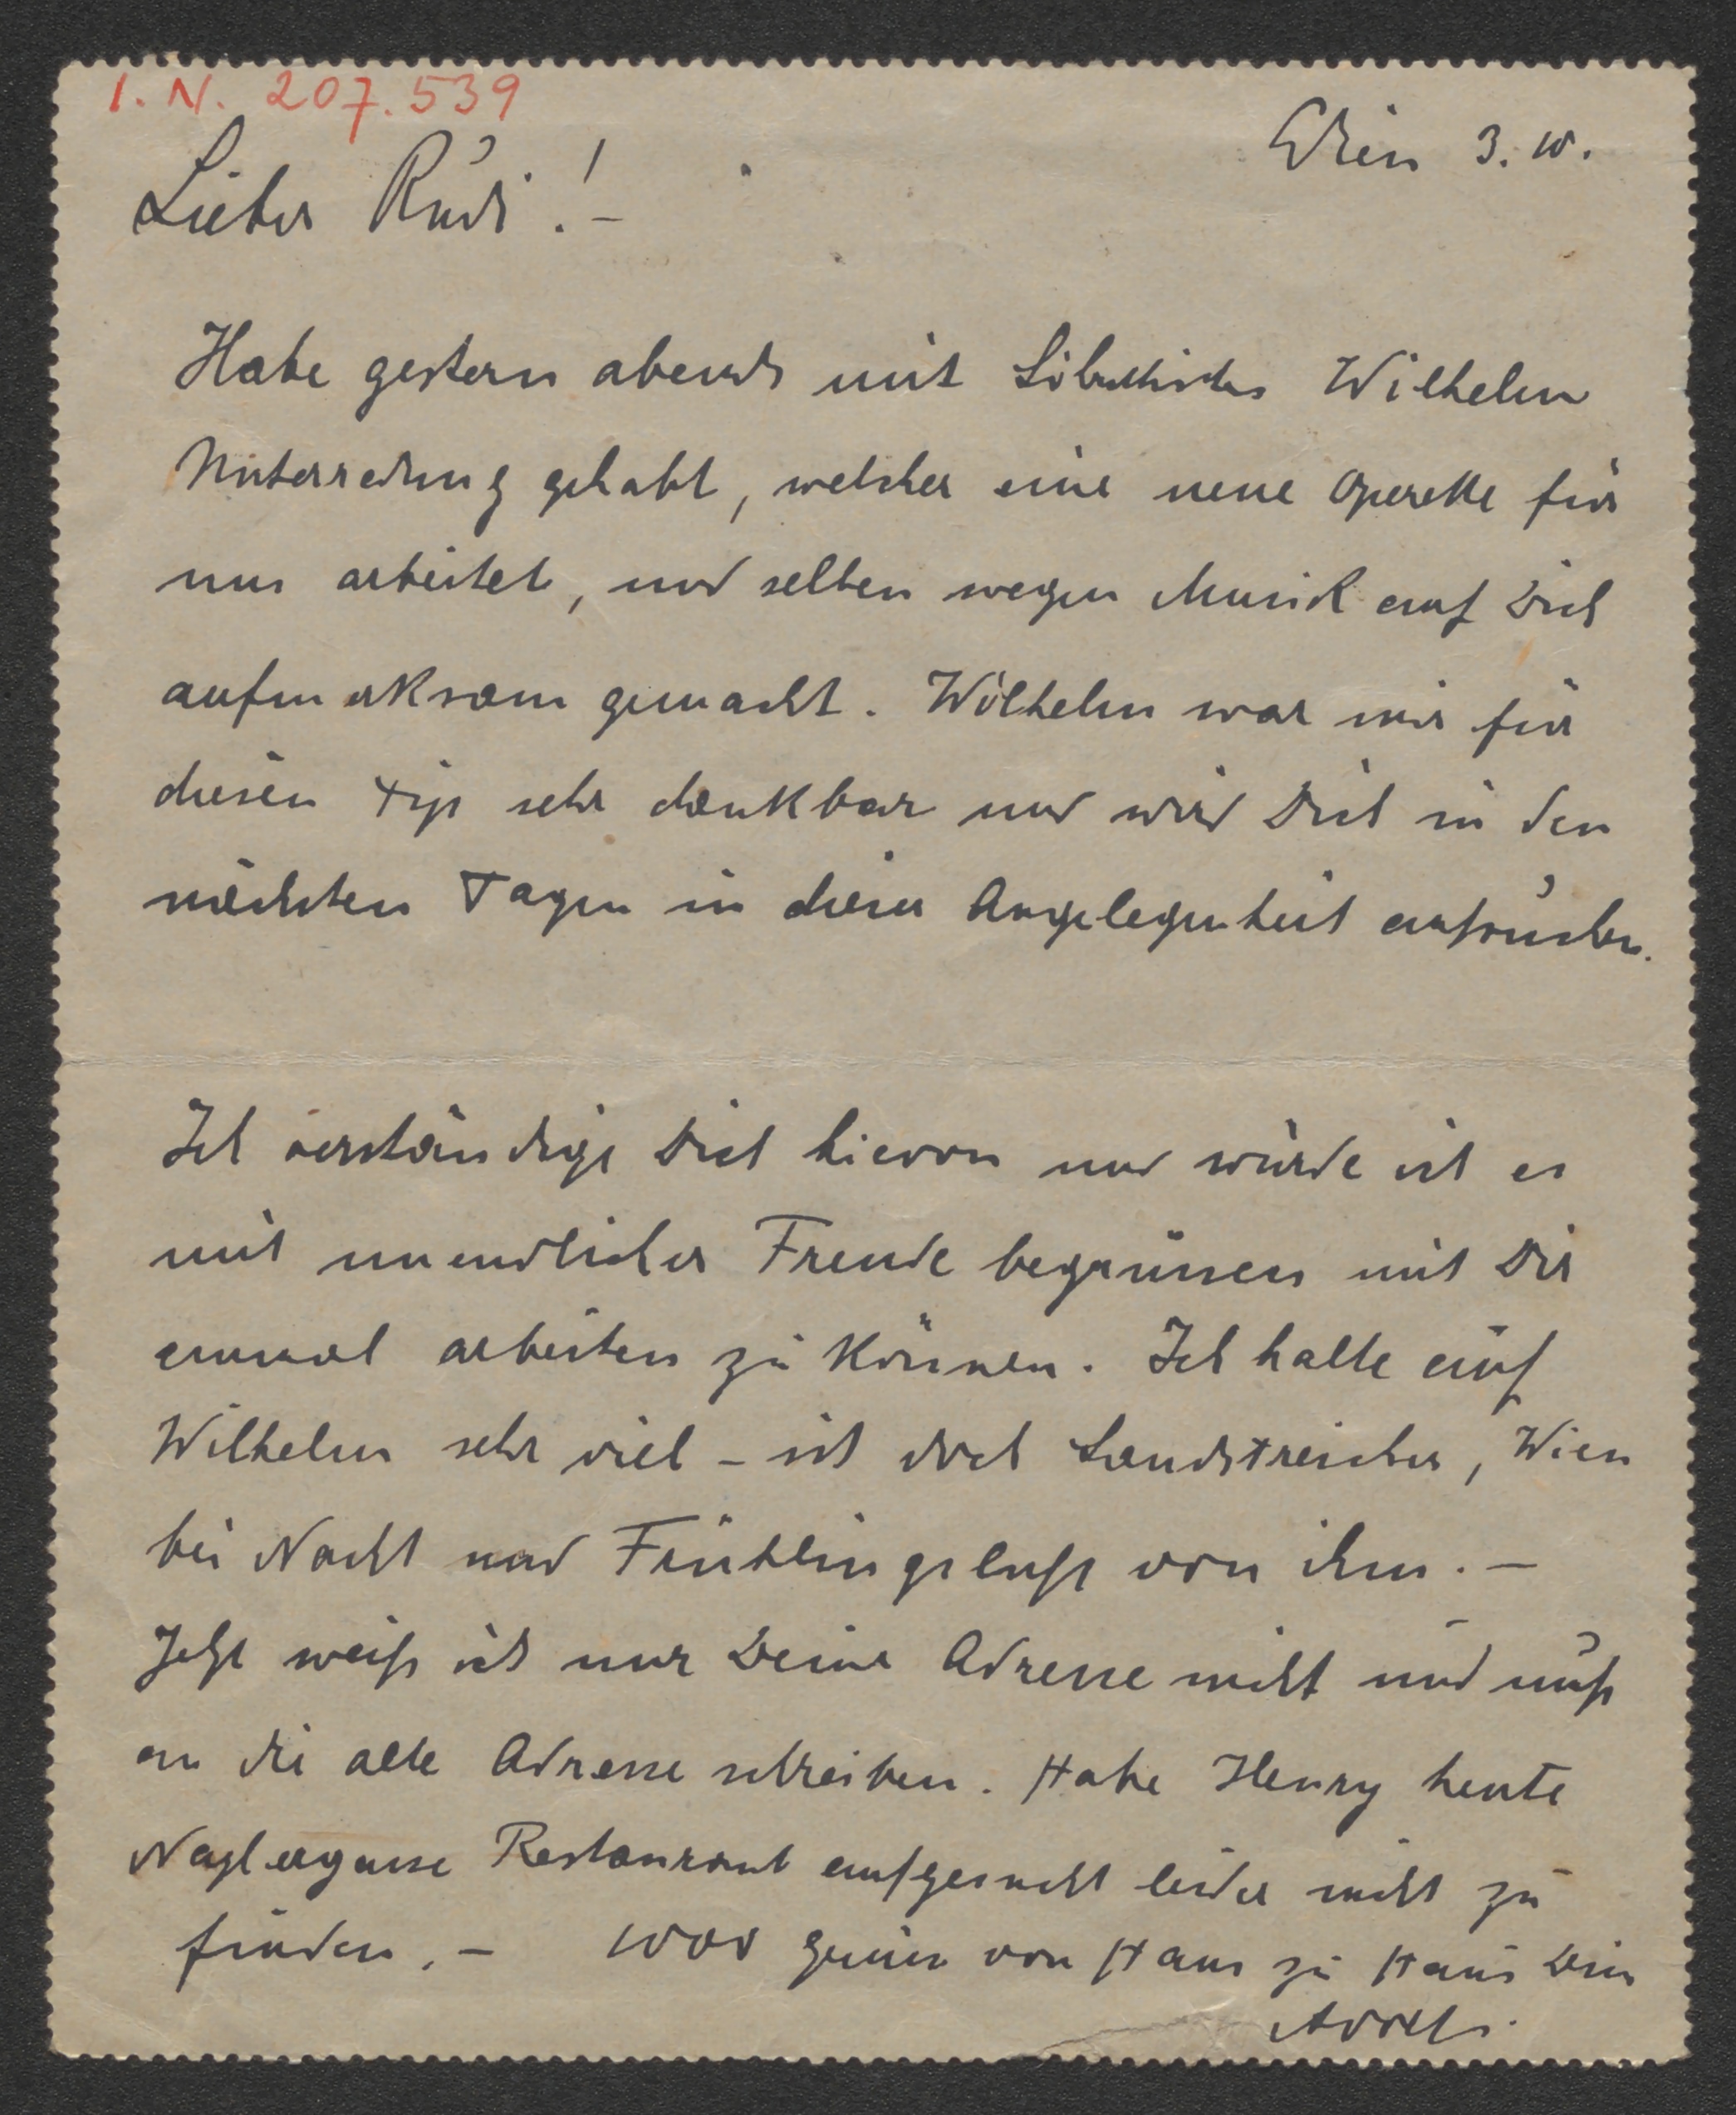 I. N. 207.539
Wien 3. IV.
Lieber Rudi! –
Habe gestern abends mit Librettisten Wilhelm
Unterredung gehabt, welcher eine neue Operette für
uns arbeitet, und selben wegen Musik auf Dich
aufmerksam gemacht. Wilhelm war mir für
diesen Tip sehr dankbar und wird Dich in den
nächsten Tagen in dieser Angelegenheit aufsuchen.
Ich verständige Dich hievon und würde ich es
mit unendlicher Freude begrüssen mit Dir
einmal arbeiten zu können. Ich halte auf
Wilhelm sehr viel – ist doch Landstreicher, Wien
bei Nacht und Frühlingsluft von ihm. –
Jetzt weiß ich nur Deine Adresse nicht und muß
an die alte Adresse schreiben. Habe Henry heute
Naglergasse Restaurant aufgesucht leider nicht zu
finden. – 1000 Grüße von Haus zu Haus Dein